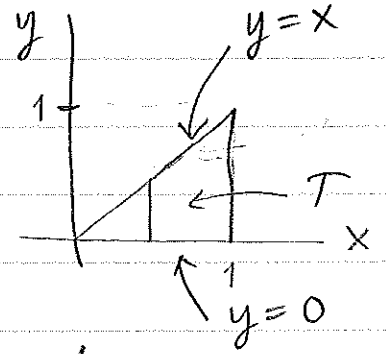 y
y = x
1
T
x
1
y = 0